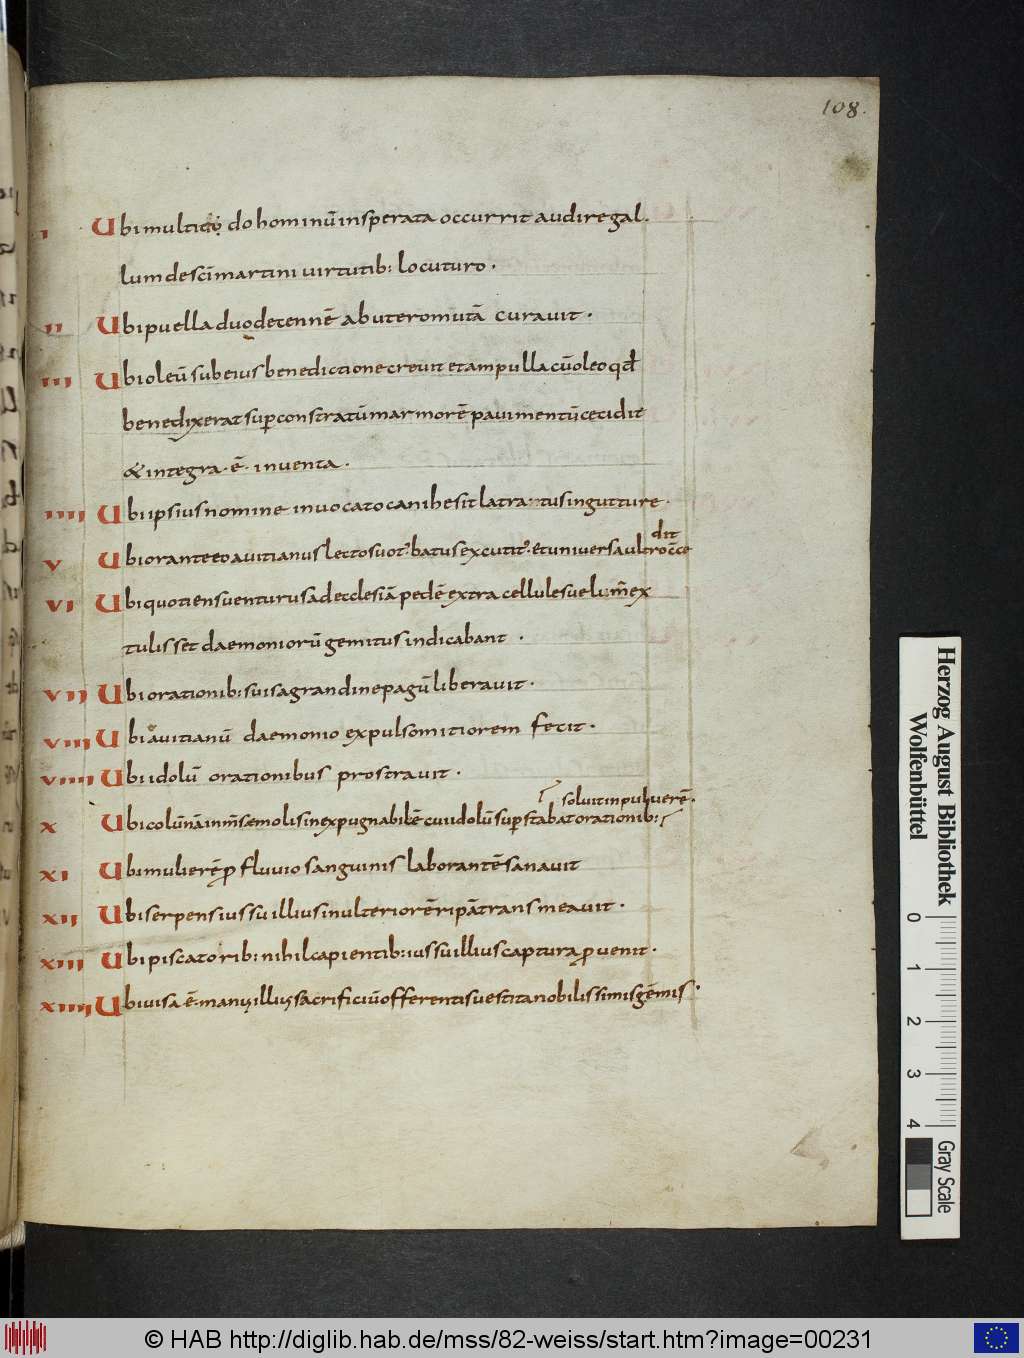 108.
I Ubi multitudo hominū insperata occurrit audire gal
lum de sc̄i martini virtutib: locuturo.
II Ubi puella duodetennē ab utero mutā curavit.
III Ubi oleū sub eius benedictione crevit et ampulla cū oleo qđ
benedixerat sup constratū marmorē pavimentū cecidit
& integra · ē · inventa.
IIII Ubi ipsius nomine invocato cani hesit latratus in gutture.
V Ubi orante eo avitianus lecto suo
VI Ubi quotiens venturus ad ecclesiā pedē extra cellule sue lum̄ ex
tulisset daemoniorū gemitus indicabant.
VII Ubi orationib: suis a grandine pagū liberavit.
VIII Ubi avitianū daemonio expulso mitiorem fecit.
VIIII Ubi idolū orationibus prostravit.
solvit in pulverē.
X Ubi colūnā inm̄se molis inexpugnabilē cui idolū sup stabat orationib:
XI Ubi mulierē p fluvio sanguinis laborantē sanavit
XII Ubi serpens iussu illius in ulteriorē ripā transmeavit.
XIII Ubi piscatorib: nihil capientib: iussu illius captura pvenit.
XIIII Ubi visa · ē · manus illius sacrificiū offerentis vestita nobilissimis gēmis.
Herzog August Bibliothek
Wolfenbüttel
0 1 2 3 4
Gray Scale
© HAB http://diglib.hab.de/mss/82-weiss/start.htm?image=00231